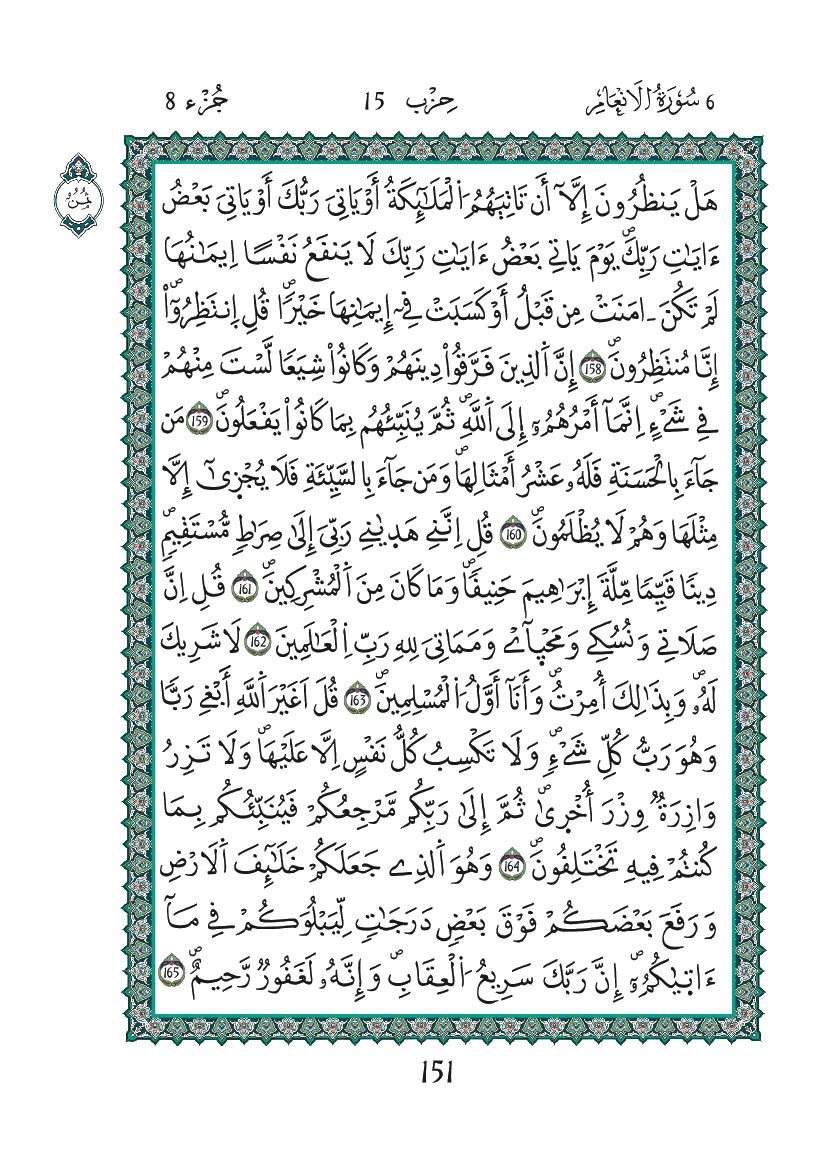 6 سُورَةُ الَانْعَامِ حِزْب 15 جُزْء 8
ثُمُن
هَلْ يَنظُرُونَ إِلَّآ أَن تَاتِيَهُمُ اُ۬لْمَلَٰٓئِكَةُ أَوْ يَاتِيَ رَبُّكَ أَوْ يَاتِيَ بَعْضُ
ءَايَٰتِ رَبِّكَۖ يَوْمَ يَاتِے بَعْضُ ءَايَٰتِ رَبِّكَ لَا يَنفَعُ نَفْساً اِيمَٰنُهَا
لَمْ تَكُنَ اٰمَنَتْ مِن قَبْلُ أَوْ كَسَبَتْ فِےٓ إِيمَٰنِهَا خَيْراٗۖ قُلِ اِ۪نتَظِرُوٓاْ
إِنَّا مُنتَظِرُونَۖ 158 إِنَّ اَ۬لذِينَ فَرَّقُواْ دِينَهُمْ وَكَانُواْ شِيَعاٗ لَّسْتَ مِنْهُمْ
فِے شَےْءٍۖ اِنَّمَآ أَمْرُهُمُۥٓ إِلَى اَ۬للَّهِۖ ثُمَّ يُنَبِّئُهُم بِمَا كَانُواْ يَفْعَلُونَۖ 159 مَن
جَآءَ بِالْحَسَنَةِ فَلَهُۥ عَشْرُ أَمْثَالِهَاۖ وَمَن جَآءَ بِالسَّيِّئَةِ فَلَا يُجْز۪يٰٓ إِلَّا
مِثْلَهَا وَهُمْ لَا يُظْلَمُونَۖ 160 قُلِ اِنَّنِے هَد۪يٰنِے رَبِّيَ إِلَىٰ صِرَٰطٖ مُّسْتَقِيمٖۖ
دِيناٗ قَيِّماٗ مِّلَّةَ إِبْرَٰهِيمَ حَنِيفاٗۖ وَمَا كَانَ مِنَ اَ۬لْمُشْرِكِينَۖ 161 قُلِ اِنَّ
صَلَاتِے وَنُسُكِے وَمَحْي۪آےْ وَمَمَاتِيَ لِلهِ رَبِّ اِ۬لْعَٰلَمِينَ 162 لَا شَرِيكَ
لَهُۥۖ وَبِذَٰلِكَ أُمِرْتُۖ وَأَنَآ أَوَّلُ اُ۬لْمُسْلِمِينَۖ 163 قُلَ اَغَيْرَ اَ۬للَّهِ أَبْغِے رَبّاٗ
وَهُوَ رَبُّ كُلِّ شَےْءٖۖ وَلَا تَكْسِبُ كُلُّ نَفْسٍ اِلَّا عَلَيْهَاۖ وَلَا تَزِرُ
وَازِرَةٞ وِزْرَ أُخْر۪يٰۖ ثُمَّ إِلَىٰ رَبِّكُم مَّرْجِعُكُمْ فَيُنَبِّئُكُم بِمَا
كُنتُمْ فِيهِ تَخْتَلِفُونَۖ 164 وَهُوَ اَ۬لذِے جَعَلَكُمْ خَلَٰٓئِفَ اَ۬لَارْضِ
وَرَفَعَ بَعْضَكُمْ فَوْقَ بَعْضٖ دَرَجَٰتٖ لِّيَبْلُوَكُمْ فِے مَآ
ءَات۪يٰكُمُۥٓۖ إِنَّ رَبَّكَ سَرِيعُ اُ۬لْعِقَابِۖ وَإِنَّهُۥ لَغَفُورٞ رَّحِيمٞۖ 165
151